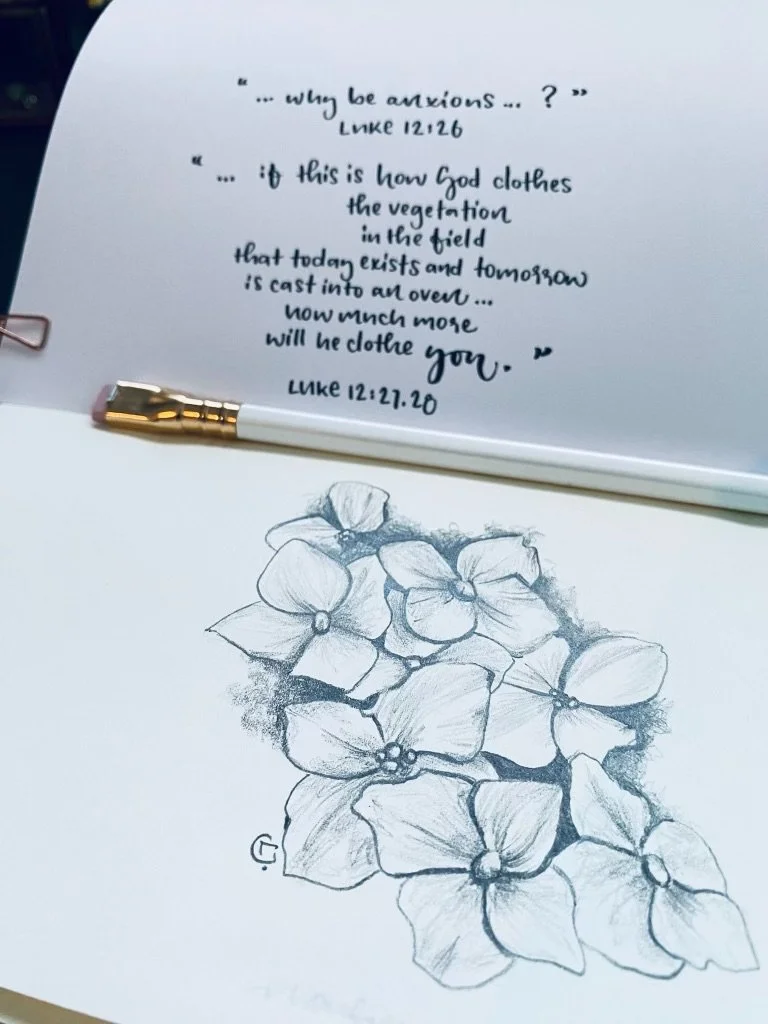 "... why be anxious... ?"
Luke 12:26
"... if this is how God clothes
the vegetation
in the field
that today exists and tomorrow
is cast into an oven...
how much more
will he clothe you."
Luke 12:27.28